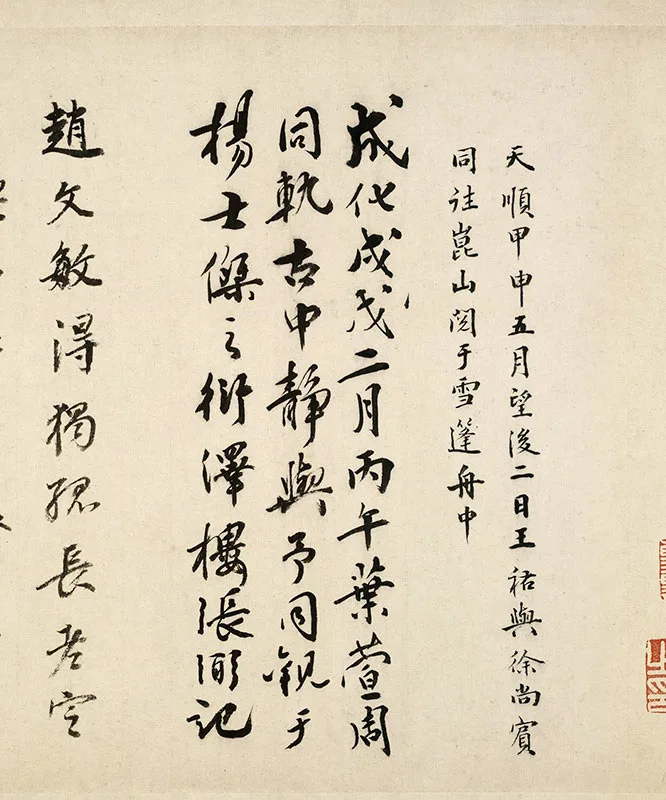 天順甲申五月望後二日王祐與徐尚賓
同往崑山閱于雪篷舟中
成化戊戌二月丙午葉萱周
同軌古中靜與予同觀于
楊士傑之衍澤樓張弼記
趙文敏得獨孤長老定